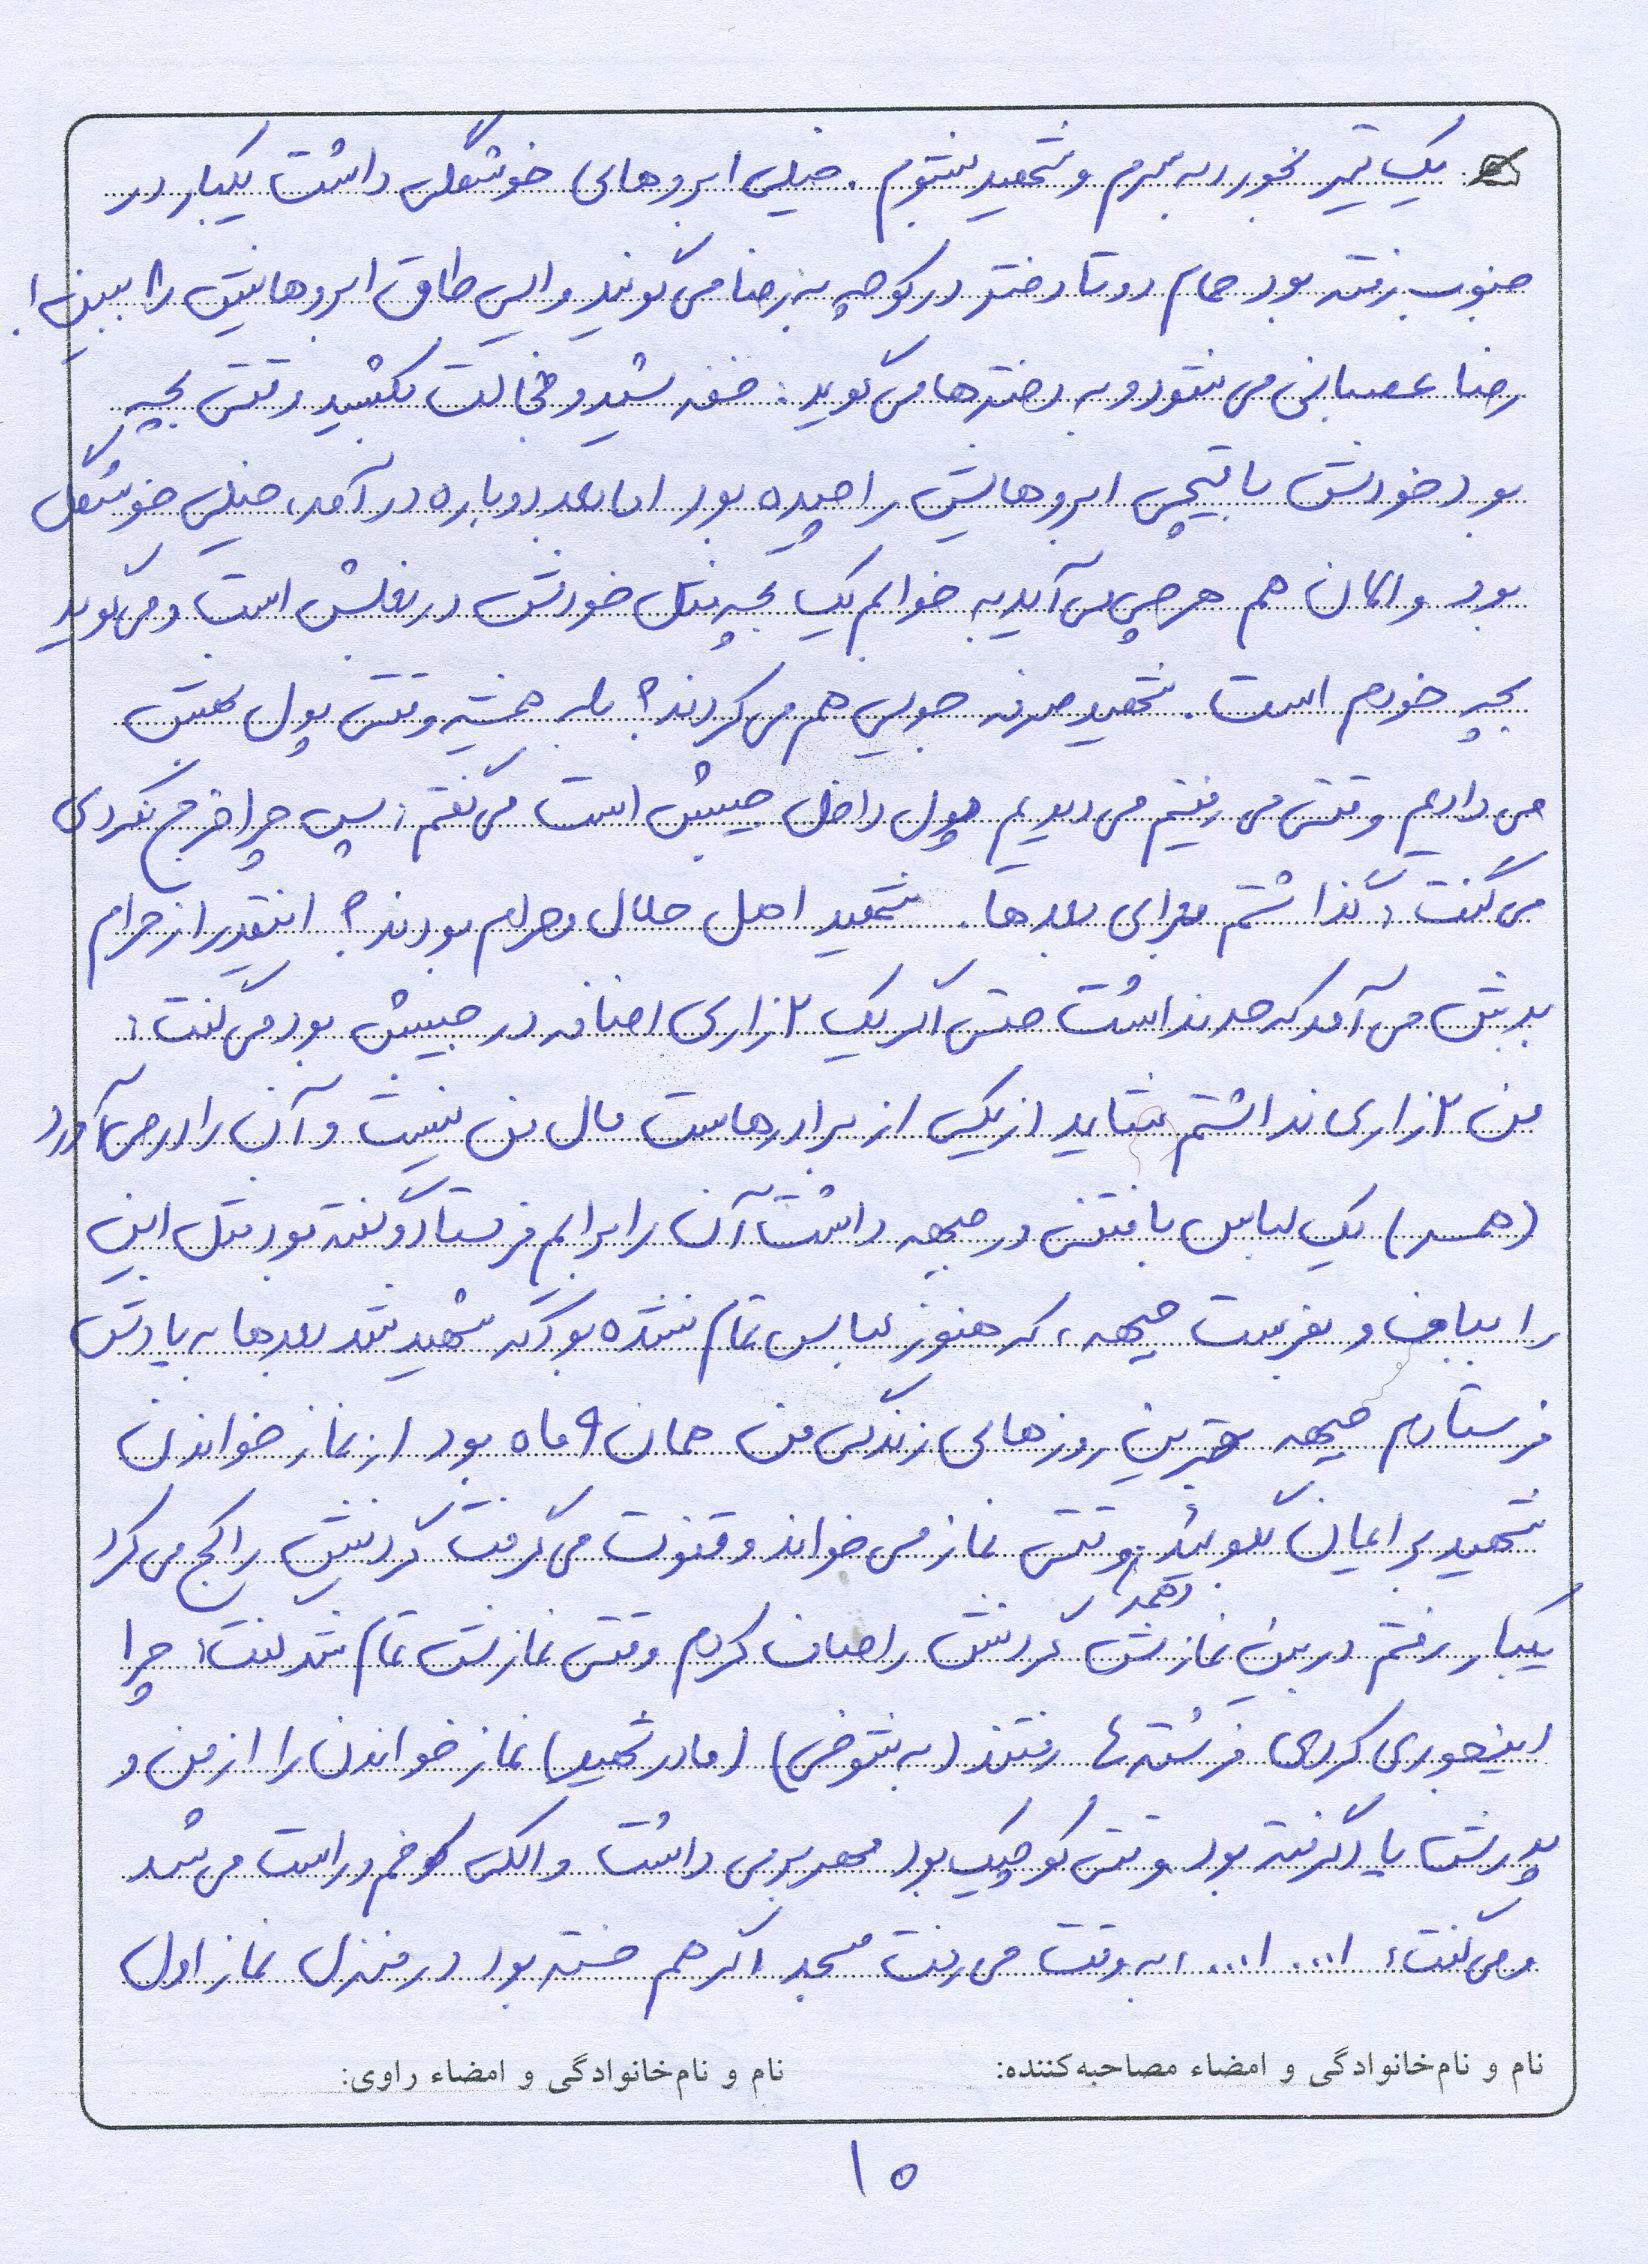 یک تیر نخورد به سرم و شهید نشوم. خیلی ابروهای خوشگلی داشت یکبار در
جنوب رفته بود حمام دو تا دختر در کوچه به رضا می گویند وای طاق ابروهایش را ببین!
رضا عصبانی می شود و به دخترها می گوید: خفه شید و خجالت بکشید وقتی بچه
بود خودش با قیچی ابروهایش را چیده بود اما بعد دوباره درآمد، خیلی خوشگل
بود و الان هم هر چی می آید به خوابم یک بچه شکل خودش در بغلش است و می گوید
بچه خودم است. شهید صرفه جویی هم می کردند؟ بله همیشه وقتی پول بهش
می دادیم وقتی می رفتیم می دیدیم پول داخل جیبش است می گفتم: پس چرا خرج نکردی
می گفت: گذاشتم برای بعدها. شهید اهل حلال و حرام بودند؟ اینقدر از حرام
بدش می آمد که حد نداشت حتی اگر یک ۲زاری اضافه در جیبش بود می گفت:
من ۲زاری نداشتم شاید از یکی از برادرهاست مال من نیست و آن را در می آورد
(همسر) یک لباس بافتنی در جبهه داشت آن را برایم فرستاد و گفته بود مثل این
را بباف و بفرست جبهه، که هنوز لباس تمام نشده بود که شهید شد بعدها به یادش
فرستادم جبهه بهترین روزهای زندگی من همان ۹ ماه بود از نماز خواندن
شهید برایمان بگویید. وقتی نماز می خواند و قنوت می گرفت گردنش را کج می کرد
(همسر)
یکبار رفتم در بین نمازش گردنش را صاف کردم وقتی نمازش تمام شد گفت: چرا
اینجوری کردی فرشته ها رفتند (به شوخی) (مادر شهید) نماز خواندن را از من و
پدرش یاد گرفته بود وقتی کوچیک بود مهر برمی داشت و الکی خم و راست می شد
و می گفت: ا... ا...، به وقت می رفت مسجد اگر هم خسته بود در منزل نماز اول
نام و نام‌خانوادگی و امضاء مصاحبه‌کننده: نام و نام‌خانوادگی و امضاء راوی:
۱۵